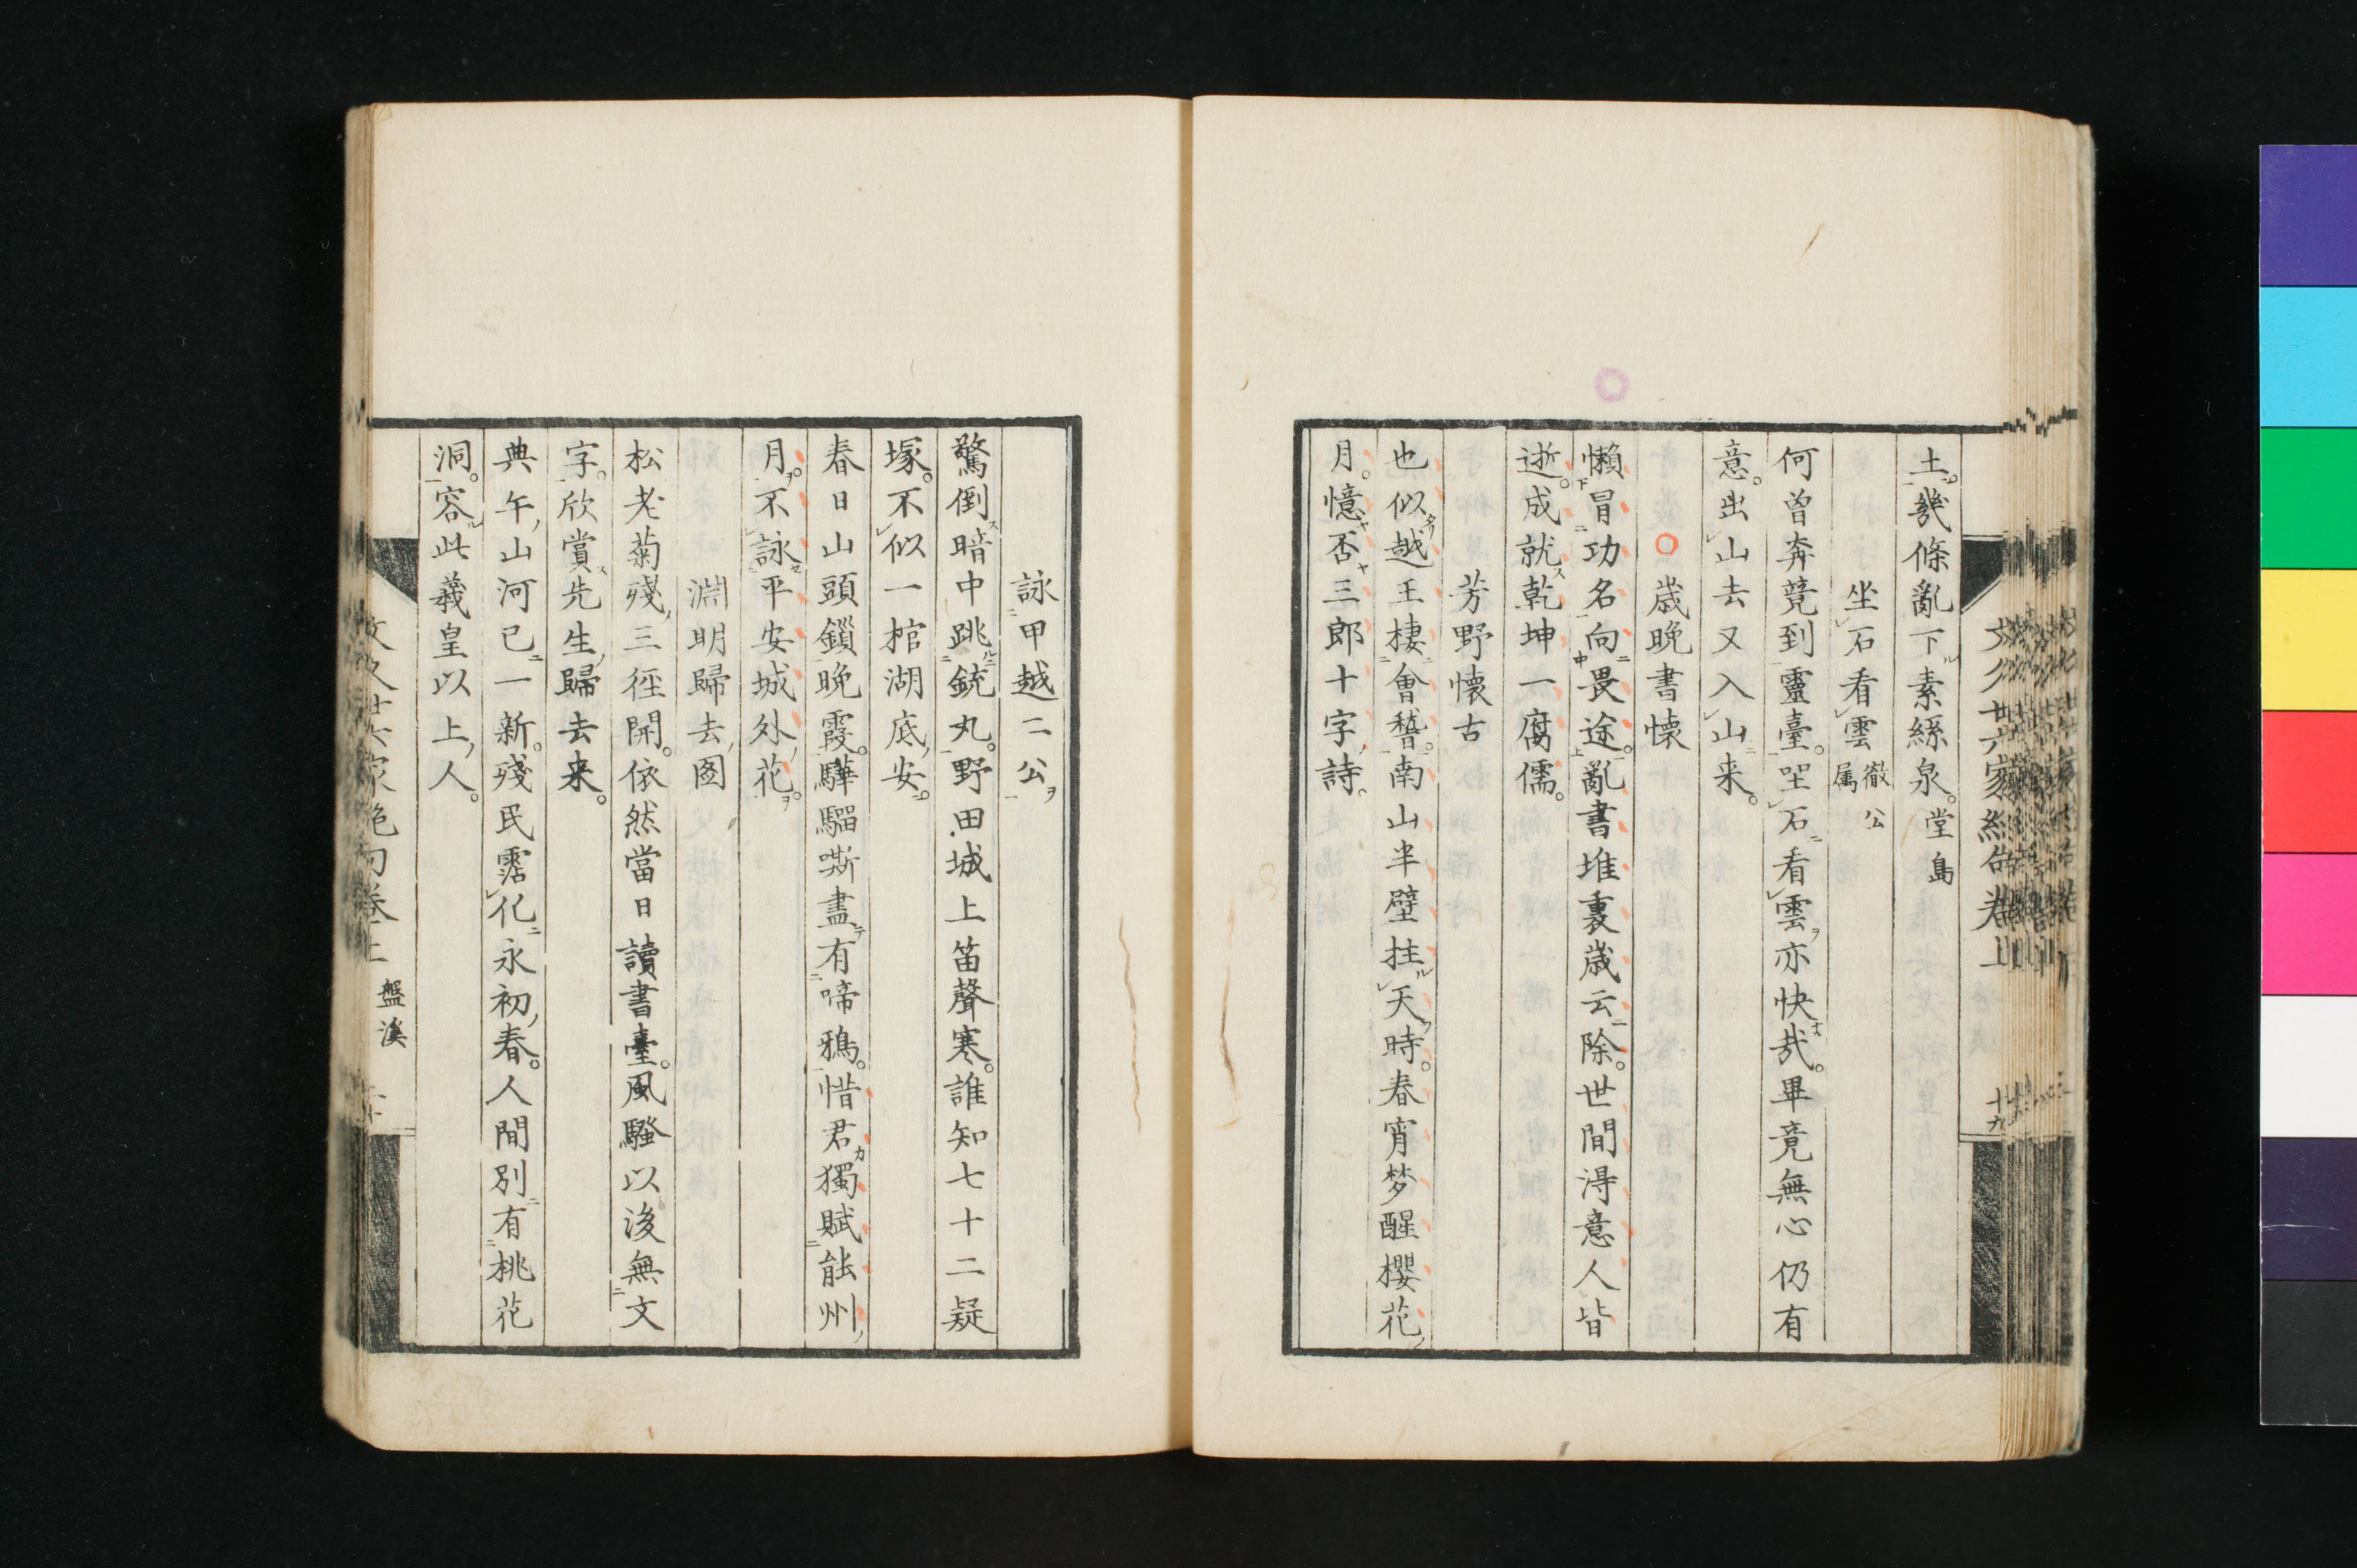 土。幾條亂下素絲泉。堂島
坐石看雲 徹公属
何曽奔競到靈臺。坐石看雲亦快哉。畢竟無心仍有
意。出山去又入山来。
歳晩書懐
懶冒功名向畏途。亂書堆裏歳云除。世間得意人皆
逝。成就乾坤一腐儒。
芳野懐古
也似越王棲會稽。南山半壁拄天時。春宵梦醒櫻花
月。憶否三郎十字詩。
詠甲越二公
驚倒暗中跳銃丸。野田城上笛聲寒。誰知七十二疑
塚。不似一棺湖底安。
春日山頭鎖晩霞。驊騮嘶盡有啼鴉。惜君獨賦能州
月。不詠平安城外花。
淵明歸去図
松老菊殘三徑開。依然當日讀書臺。風騷以後無文
字。欣賞先生歸去来。
典午山河已一新。殘民霑化永初春。人間別有桃花
洞。容此羲皇以上人。
盤溪